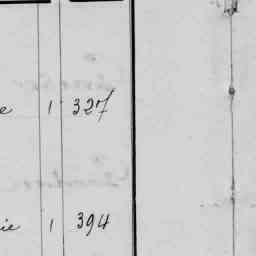 e 1 327
ie 1 394